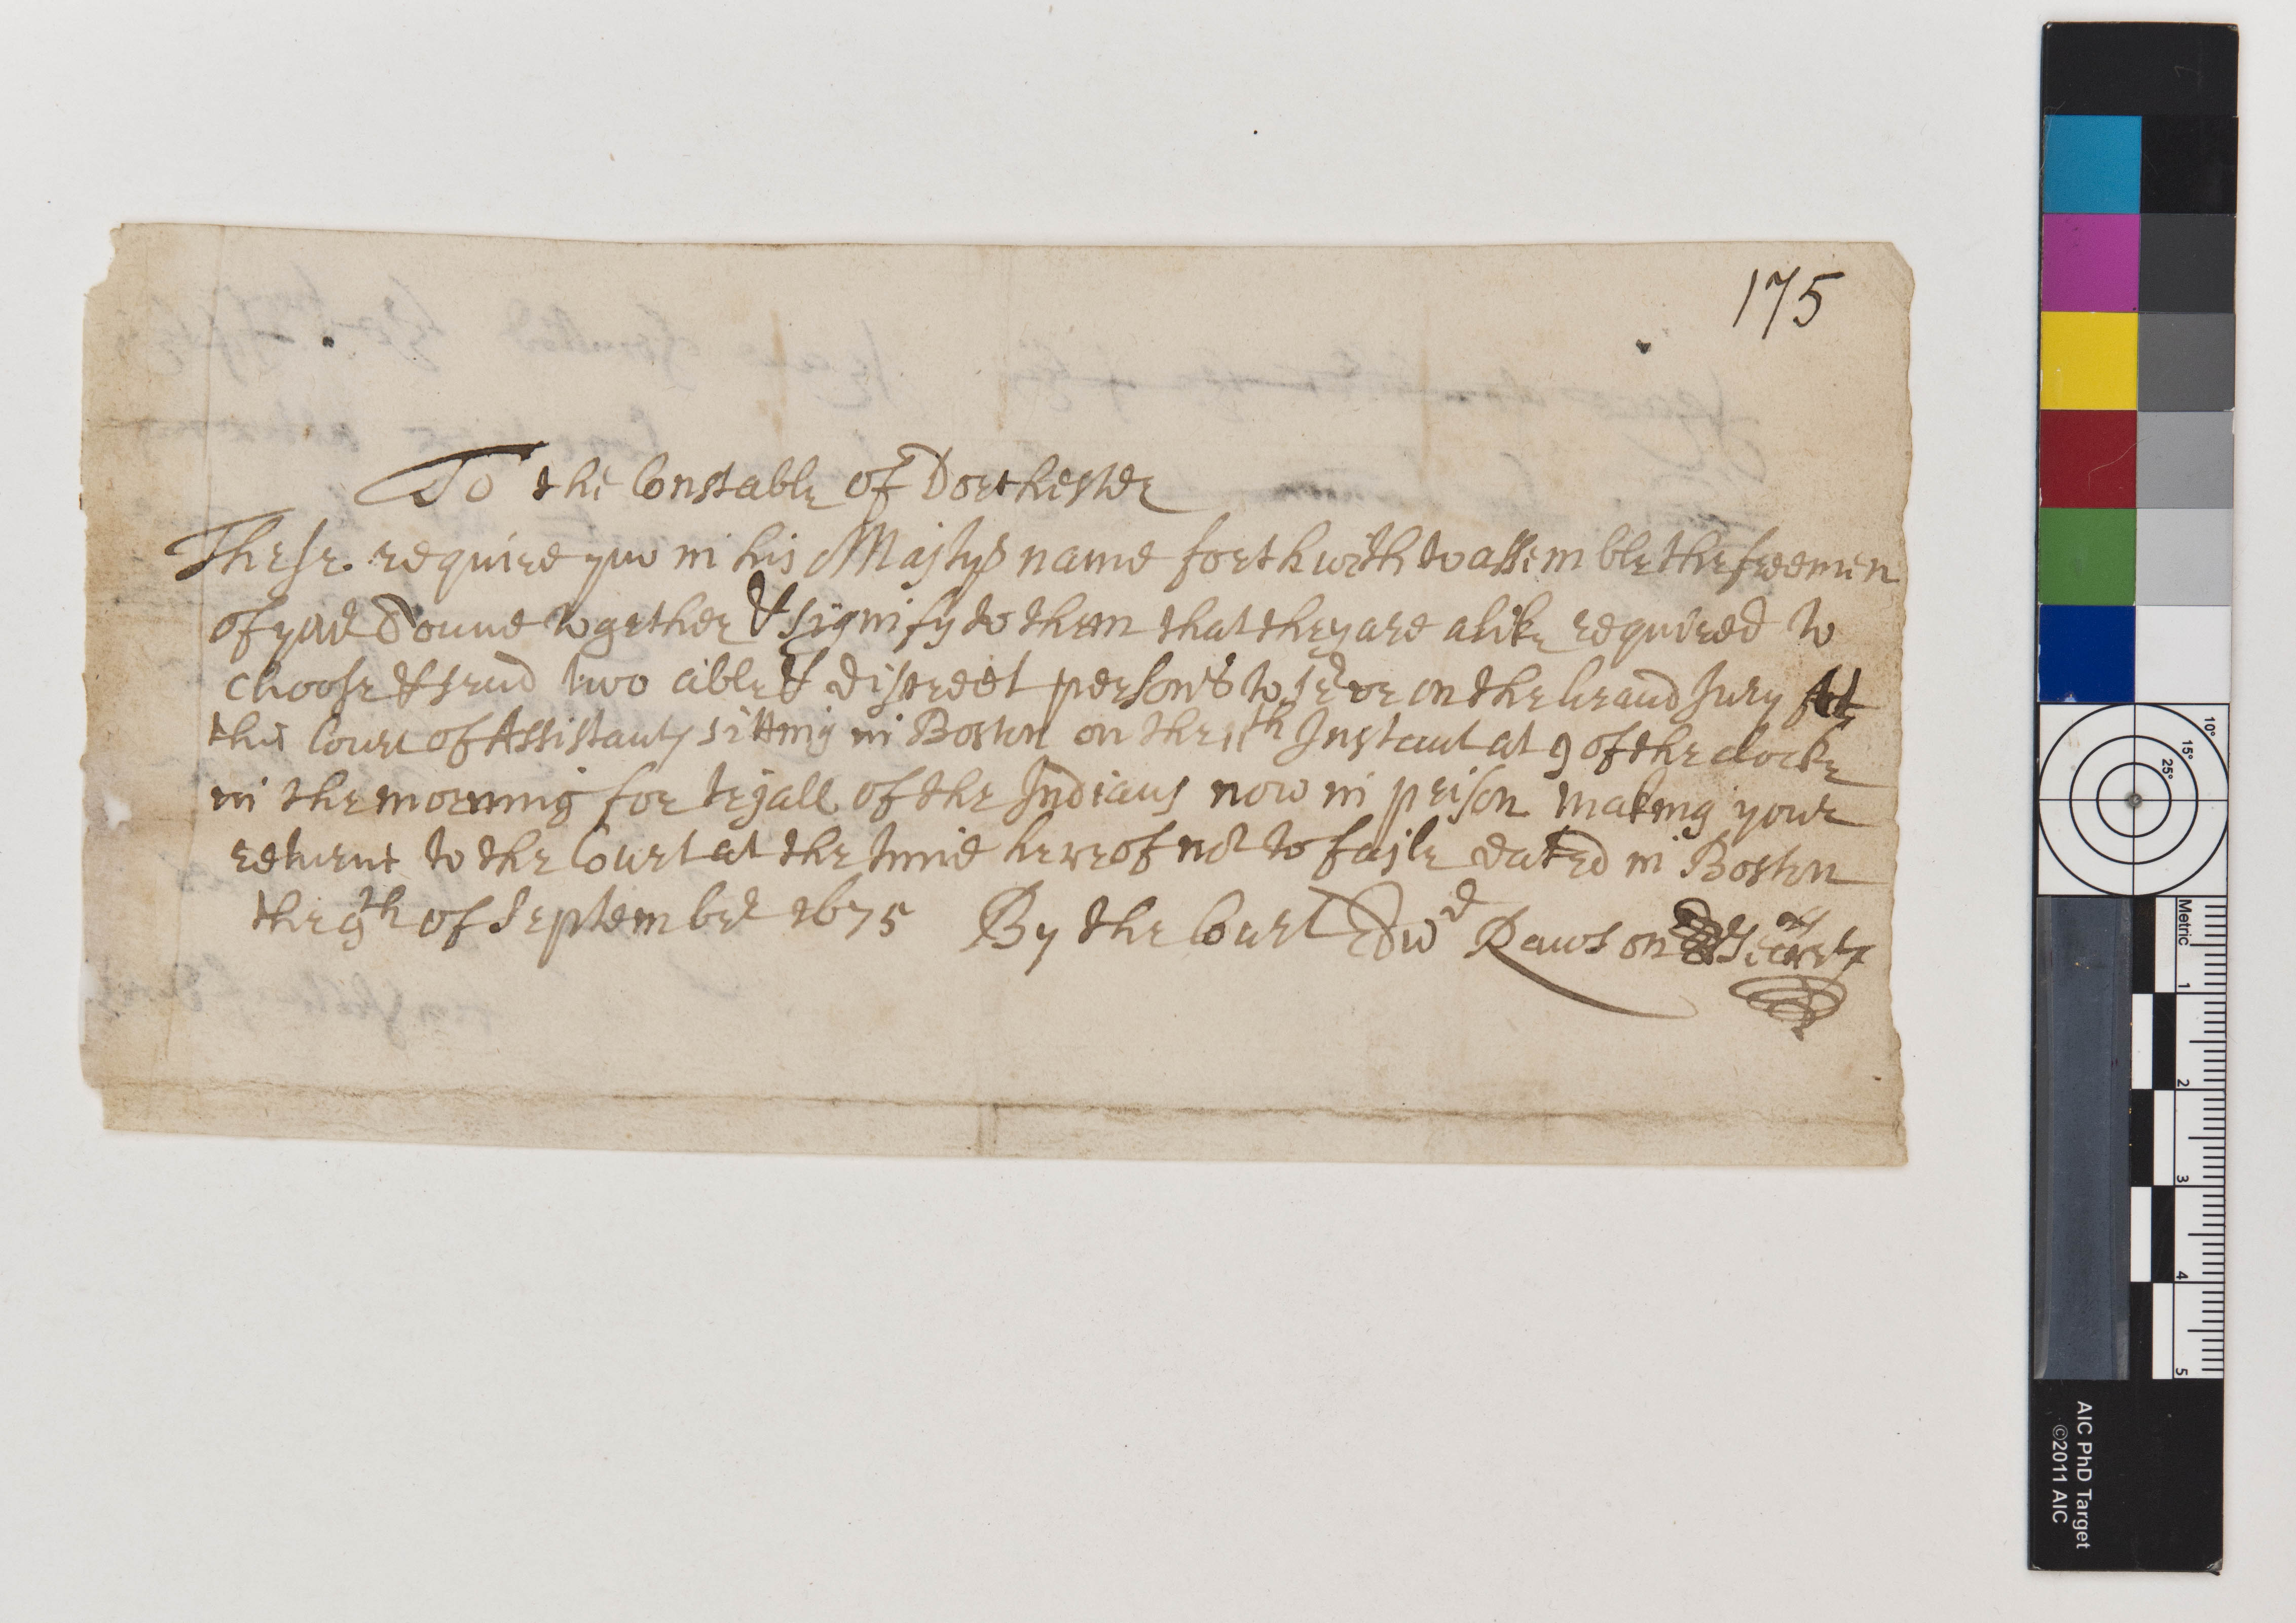 175
To the Constable of Dorchester
These require you in his Majtys name forthwith to assemble the freemen
of your Toune together & signify to them that they are alike required to
choose & send two able & discreet persons to serve on the Grand Jury
this Court of Assistants sitting in Boston on the 11th Instant at 9 of the clocke
in the morning for tryall of the Indians now in prison making your
returne to the Court at the time hereof not to faile dated in Boston
the 9th of September 1675 By the Court Edwd Rawson Secrety
Metric
1
2
3
4
5
10°
15°
25°
AIC PhD Target
©2011 AIC